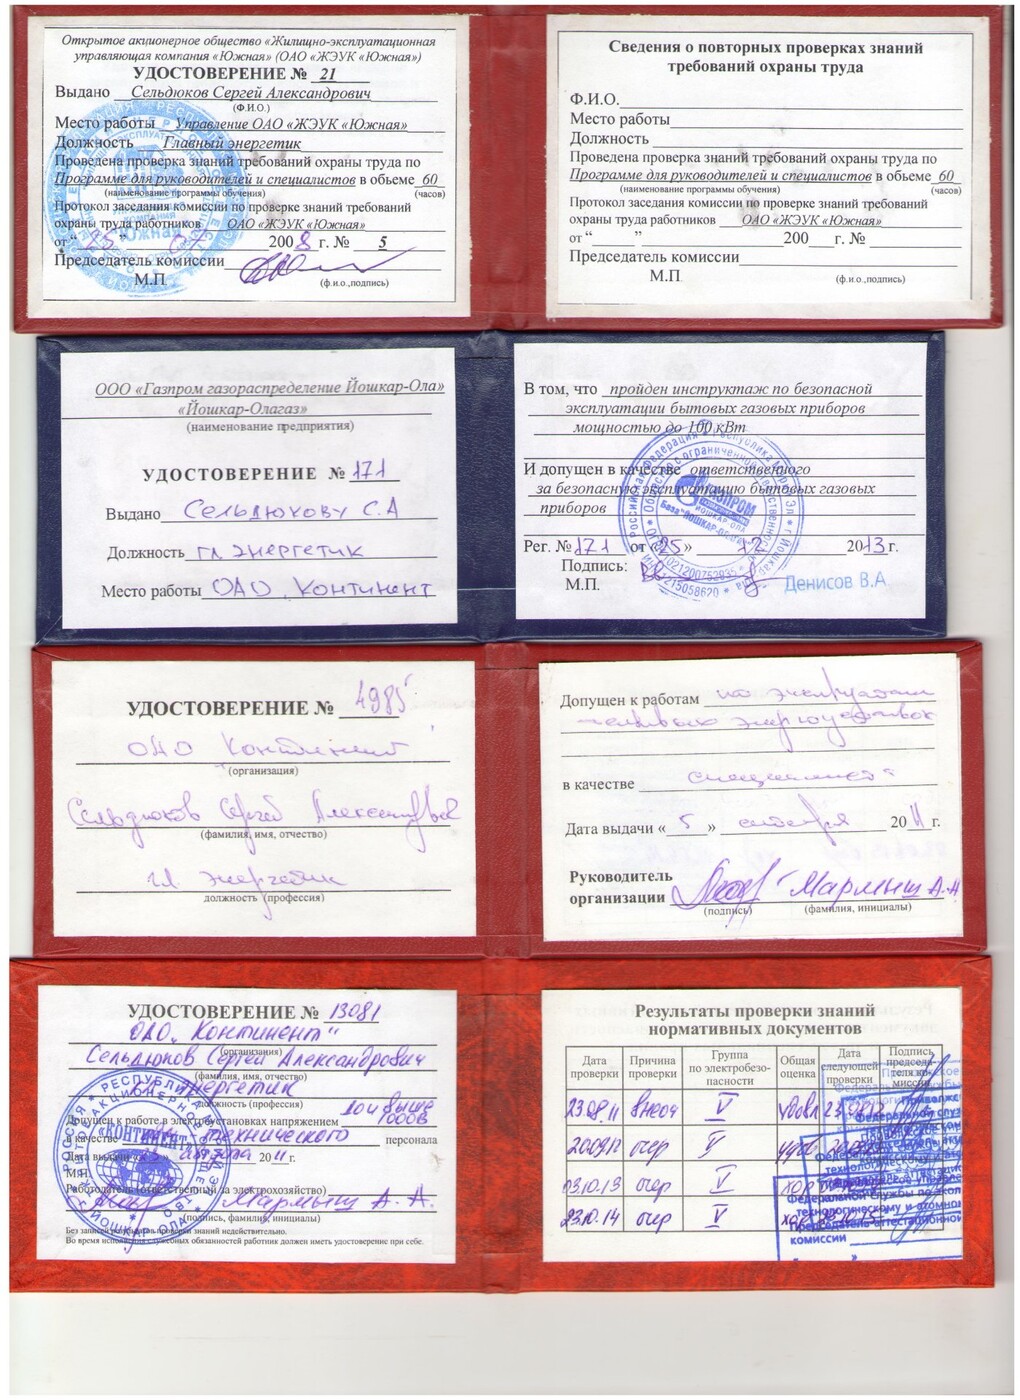 Открытое акционерное общество «Жилищно-эксплуатационная
управляющая компания «Южная» (ОАО «ЖЭУК «Южная»)
УДОСТОВЕРЕНИЕ № 21
Выдано Сельдюков Сергей Александрович
(Ф.И.О.)
Место работы Управление ОАО «ЖЭУК «Южная»
Должность Главный энергетик
Проведена проверка знаний требований охраны труда по
Программе для руководителей и специалистов в объеме 60
(наименование программы обучения) (часов)
Протокол заседания комиссии по проверке знаний требований
охраны труда работников ОАО «ЖЭУК «Южная»
от “25” 2008 г. № 5
Председатель комиссии
М.П (ф.и.о.,подпись)
Сведения о повторных проверках знаний
требований охраны труда
Ф.И.О.
Место работы
Должность
Проведена проверка знаний требований охраны труда по
Программе для руководителей и специалистов в объеме 60
(наименование программы обучения) (часов)
Протокол заседания комиссии по проверке знаний требований
охраны труда работников ОАО «ЖЭУК «Южная»
от “ ” 200 г. №
Председатель комиссии
М.П (ф.и.о.,подпись)
ООО «Газпром газораспределение Йошкар-Ола»
«Йошкар-Олагаз»
(наименование предприятия)
УДОСТОВЕРЕНИЕ № 171
Выдано Сельдюкову С.А
Должность гл энергетик
Место работы ОАО Континент
В том, что пройден инструктаж по безопасной
эксплуатации бытовых газовых приборов
мощностью до 100 кВт
И допущен в качестве ответственного
за безопасную эксплуатацию бытовых газовых
приборов
Рег. № 171 от «25» 12 2013 г.
Подпись:
М.П. Денисов В.А
УДОСТОВЕРЕНИЕ № 4985
ОАО Континент
(организация)
Сельдюков Сергей Александрович
(фамилия, имя, отчество)
гл. энергетик
должность (профессия)
Допущен к работам по эксплуатации
тепловых энергоустановок
в качестве специалиста
Дата выдачи «5» 2011 г.
Руководитель
организации Мармыш А.А
(подпись) (фамилия, инициалы)
УДОСТОВЕРЕНИЕ № 13081
ОАО „Континент“
(организация)
Сельдюков Сергей Александрович
(фамилия, имя, отчество)
энергетик
должность (профессия)
до и выше
Допущен к работе в электроустановках напряжением 1000В
в качестве технического персонала
Дата выдачи августа 2011 г.
М.П.
Работодатель (ответственный за электрохозяйство)
Мармыш А. А.
(подпись, фамилия, инициалы)
Без записей результатов проверки знаний недействительно.
Во время исполнения служебных обязанностей работник должен иметь удостоверение при себе.
Результаты проверки знаний
нормативных документов
Дата проверки Причина проверки Группа по электробезопасности Общая оценка Дата следующей проверки Подпись председателя комиссии
23.08.11 внеоч V удовл 23.08.12
20.09.12 очер V удов
03.10.13 очер V хор
23.10.14 очер V хор